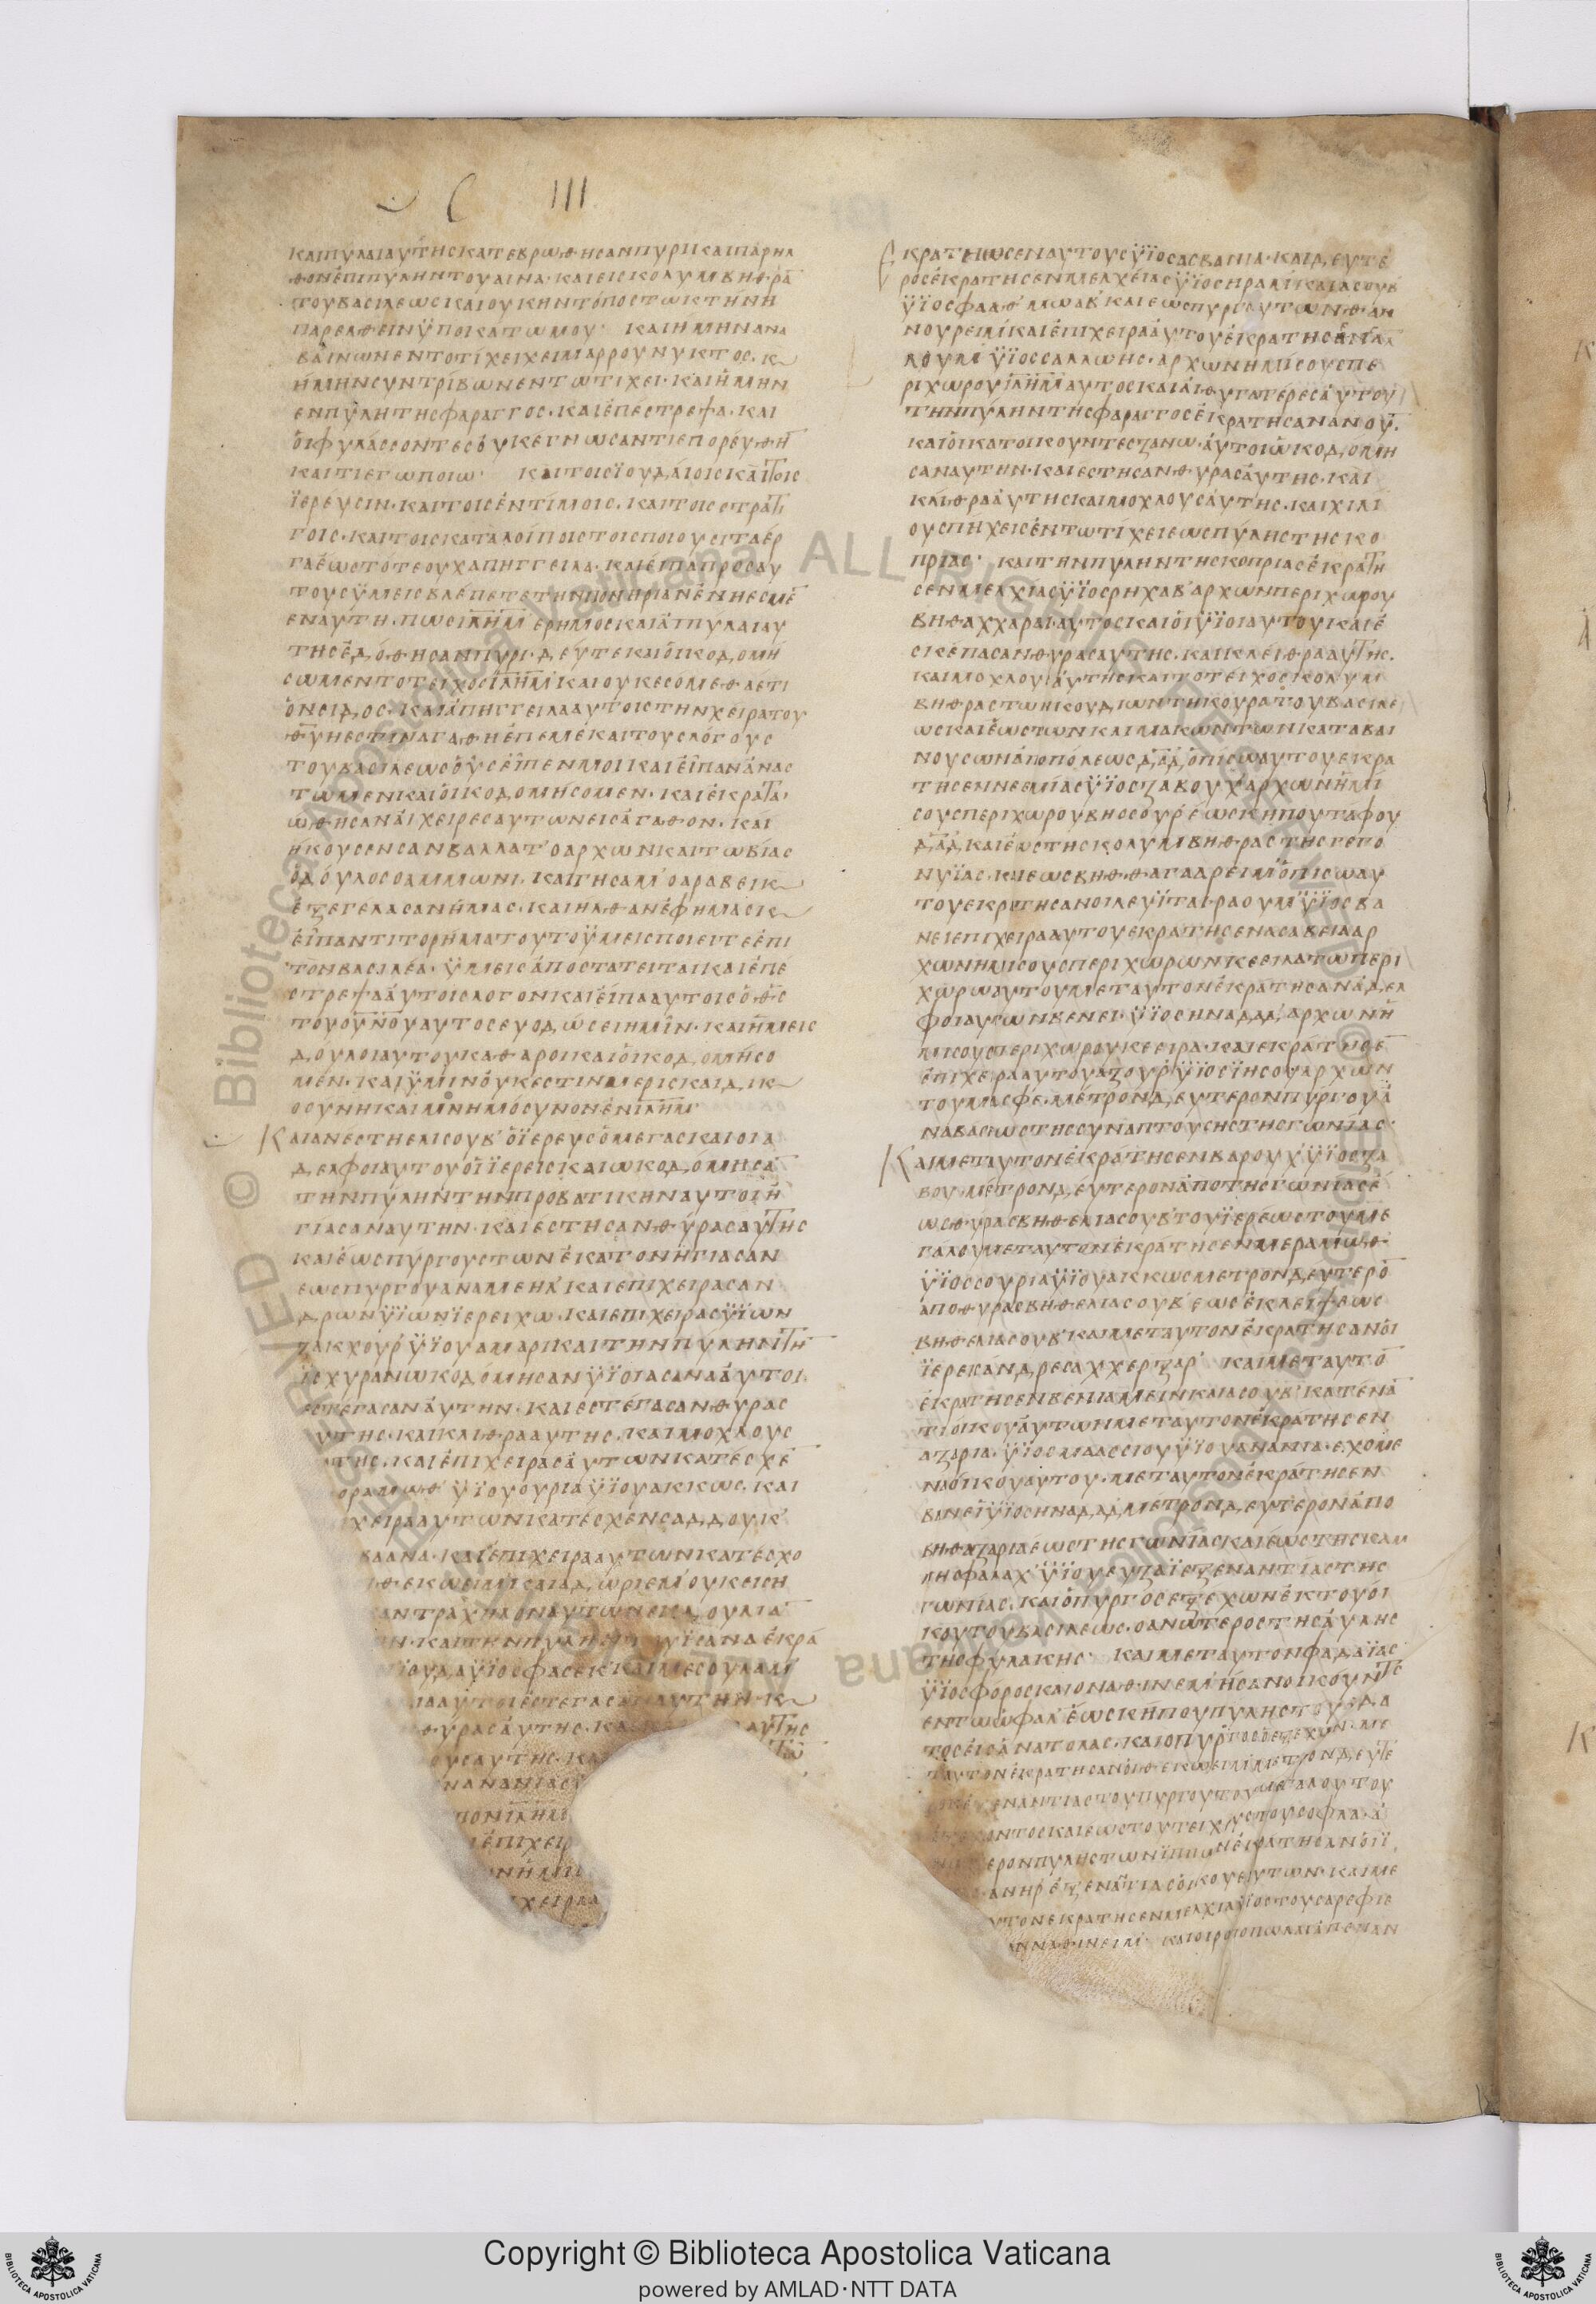 III
ΚΑΙΠΥΛΑΙΑΥΤΗΣΚΑΤΕΒΡΩΘΗΣΑΝΠΥΡΙΚΑΙΠΑΡΗΛ
ΘΟΝΕΠΙΠΥΛΗΝΤΟΥΑΙΝΑ·ΚΑΙΕΙΣΚΟΛΥΜΒΗΘΡΑ̅
ΤΟΥΒΑΣΙΛΕΩΣΚΑΙΟΥΚΗΝΤΟΠΟΣΤΩΚΤΗΝΗ
ΠΑΡΕΛΘΕΙΝΫΠΟΚΑΤΩΜΟΥ· ΚΑΙΗΜΗΝΑΝΑ
ΒΑΙΝΩΝΕΝΤΟΤΙΧΕΙΧΕΙΜΑΡΡΟΥΝΥΚΤΟΣ·Κ
ΗΜΗΝΣΥΝΤΡΙΒΩΝΕΝΤΩΤΙΧΕΙ·ΚΑΙΗΜΗΝ
ΕΝΠΥΛΗΤΗΣΦΑΡΑΓΓΟΣ·ΚΑΙΕΠΕΣΤΡΕΨΑ·ΚΑΙ
ΟΙΦΥΛΑΣΣΟΝΤΕΣΟΥΚΕΓΝΩΣΑΝΤΙΕΠΟΡΕΥΘΗ̅
ΚΑΙΤΙΕΓΩΠΟΙΩ· ΚΑΙΤΟΙΣΪΟΥΔΑΙΟΙΣΚΑΙΤΟΙΣ
ΪΕΡΕΥΣΙΝ·ΚΑΙΤΟΙΣΕΝΤΙΜΟΙΣ·ΚΑΙΤΟΙΣΣΤΡΑΤΗ
ΓΟΙΣ·ΚΑΙΤΟΙΣΚΑΤΑΛΟΙΠΟΙΣΤΟΙΣΠΟΙΟΥΣΙΤΑΕΡ
ΓΑΕΩΣΤΟΤΕΟΥΧΑΠΗΓΓΕΙΛΑ·ΚΑΙΕΙΠΑΠΡΟΣΑΥ
ΤΟΥΣΫΜΕΙΣΒΛΕΠΕΤΕΤΗΝΠΟΝΗΡΙΑΝΕΝΗΕΣΜΕ̅
ΕΝΑΥΤΗ·ΠΩΣΙΛΗΜΕΡΗΜΟΣΚΑΙΑΙΠΥΛΑΙΑΥ
ΤΗΣΕΔΟΘΗΣΑΝΠΥΡΙ·ΔΕΥΤΕΚΑΙΟΙΚΟΔΟΜΗ
ΣΩΜΕΝΤΟΤΕΙΧΟΣΙΛΗΜΚΑΙΟΥΚΕΣΟΜΕΘΑΕΤΙ
ΟΝΕΙΔΟΣ·ΚΑΙΑΠΗΓΓΕΙΛΑΑΥΤΟΙΣΤΗΝΧΕΙΡΑΤΟΥ
Θ̅Υ̅ΗΕΣΤΙΝΑΓΑΘΗΕΠΕΜΕΚΑΙΤΟΥΣΛΟΓΟΥΣ
ΤΟΥΒΑΣΙΛΕΩΣΟΥΣΕΙΠΕΝΜΟΙΚΑΙΕΙΠΑΝΑΝΑΣ
ΤΩΜΕΝΚΑΙΟΙΚΟΔΟΜΗΣΟΜΕΝ·ΚΑΙΕΚΡΑΤΑΙ
ΩΘΗΣΑΝΑΙΧΕΙΡΕΣΑΥΤΩΝΕΙΣΑΓΑΘΟΝ·ΚΑΙ
ΗΚΟΥΣΕΝΣΑΝΒΑΛΛΑΤʼΟΑΡΧΩΝΚΑΙΤΩΒΙΑΣ
ΟΔΟΥΛΟΣΟΑΜΜΩΝΙ·ΚΑΙΓΗΣΑΜʼΟΑΡΑΒΕΙΚ
ΕΞΕΓΕΛΑΣΑΝΗΜΑΣ·ΚΑΙΗΛΘΑΝΕΦΗΜΑΣΚ
ΕΙΠΑΝΤΙΤΟΡΗΜΑΤΟΥΤΟΫΜΕΙΣΠΟΙΕΙΤΕΕΠΙ
ΤΟΝΒΑΣΙΛΕΑ·ΫΜΕΙΣΑΠΟΣΤΑΤΕΙΤΑΙΚΑΙΕΠΕ
ΣΤΡΕΨΑΑΥΤΟΙΣΛΟΓΟΝΚΑΙΕΙΠΑΑΥΤΟΙΣΟΘ̅Σ̅
ΤΟΥΟΥΝΟΥΑΥΤΟΣΕΥΟΔΩΣΕΙΗΜΙΝ·ΚΑΙΗΜΕΙΣ
ΔΟΥΛΟΙΑΥΤΟΥΚΑΘΑΡΟΙΚΑΙΟΙΚΟΔΟΜΗΣΟ
ΜΕΝ·ΚΑΙΫΜΙΝΟΥΚΕΣΤΙΝΜΕΡΙΣΚΑΙΔΙΚ
ΟΣΥΝΗΚΑΙΜΝΗΜΟΣΥΝΟΝΕΝΙΛΗΜ·
ΚΑΙΑΝΕΣΤΗΕΛΙΣΟΥΒʼΟΪΕΡΕΥΣΟΜΕΓΑΣΚΑΙΟΙΑ
ΔΕΛΦΟΙΑΥΤΟΥΟΙΪΕΡΕΙΣΚΑΙΩΚΟΔΟΜΗΣΑ̅
ΤΗΝΠΥΛΗΝΤΗΝΠΡΟΒΑΤΙΚΗΝΑΥΤΟΙΗ
ΓΙΑΣΑΝΑΥΤΗΝ·ΚΑΙΕΣΤΗΣΑΝΘΥΡΑΣΑΥΤΗΣ
ΚΑΙΕΩΣΠΥΡΓΟΥΣΤΩΝΕΚΑΤΟΝΗΓΙΑΣΑΝ
ΕΩΣΠΥΡΓΟΥΑΝΑΜΕΗΛʼΚΑΙΕΠΙΧΕΙΡΑΣΑΝ
ΔΡΩΝΫΪΩΝΪΕΡΕΙΧΩ·ΚΑΙΕΠΙΧΕΙΡΑΣΫΪΩΝ
ΖΑΚΧΟΥΡʼΫΪΟΥΑΜΑΡΙΚΑΙΤΗΝΠΥΛΗΝΤΗ̅
ΪΣΧΥΡΑΝΩΚΟΔΟΜΗΣΑΝΫΪΟΙΑΣΑΝΑΑΥΤΟΙ
ΕΣΤΕΓΑΣΑΝΑΥΤΗΝ·ΚΑΙΕΣΤΕΓΑΣΑΝΘΥΡΑΣ
ΥΤΗΣ·ΚΑΙΚΛΙΘΡΑΑΥΤΗΣ·ΚΑΙΜΟΧΛΟΥΣ
ΤΗΣ·ΚΑΙΕΠΙΧΕΙΡΑΣΑΥΤΩΝΚΑΤΕΣΧΕ̅
ΟΡΑΜΩΘʼΫΪΟΥΟΥΡΙΑΫΪΟΥΑΚΚΩΣ·ΚΑΙ
ΧΕΙΡΑΑΥΤΩΝΚΑΤΕΣΧΕΝΣΑΔΔΟΥΚʼ
ΒΑΑΝΑ·ΚΑΙΕΠΙΧΕΙΡΑΑΥΤΩΝΚΑΤΕΣΧΟ
ΘΕΚΩΕΙΜΚΑΙΑΔΩΡΙΕΜʼΟΥΚΕΙΣΗ
ΑΝΤΡΑΧΗΛΟΝΑΥΤΩΝΕΙΣΔΟΥΛΙΑ̅
Ν·ΚΑΙΤΗΝΠΥΛΗΝ ΪΣΑΝΑΕΚΡΑ
ΪΟΥΔΑΫΙΟΣΦΑΣΕΚʼΚΑΙΜΕΣΟΥΛΑΜ
ΙΑΑΥΤΟΙΕΣΤΕΓΑΣΑΝΑΥΤΗΝ·Κ
ΘΥΡΑΣΑΥΤΗΣ·ΚΑ ΑΥΤΗΣ
ΟΥΣΑΥΤΗΣ·ΚΑ ΤΩ̅
ΝΑΝΑΝΙΑΣ
ΠΟΝΙΛΗΜ
ΕΠΙΧΕΙΡ
ΝΗΜΙ
ΧΕΙΡΑΑ
ΕΚΡΑΤΗΣΕΝΑΥΤΟΥΣΫΪΟΣΑΣΒΑΝΙΑ·ΚΑΙΔΕΥΤΕ
ΡΟΣΕΚΡΑΤΗΣΕΝΜΕΛΧΕΙΑΣΫΪΟΣΗΡΑΜʼΚΑΙΑΣΟΥΒ
ΫΪΟΣΦΑΑΘʼΜΩΑΒʼΚΑΙΕΩΣΠΥΡΓΟΥΤΩΝΘΑΝ
ΝΟΥΡΕΙΜʼΚΑΙΕΠΙΧΕΙΡΑΑΥΤΟΥΕΚΡΑΤΗΣΕΝ
ΛΟΥΜʼΫΪΟΣΣΑΛΛΩΗΣ·ΑΡΧΩΝΗΜΙΣΟΥΣΠΕ
ΡΙΧΩΡΟΥΙΛΗΜΑΥΤΟΣΚΑΙΑΙΘΥΓΑΤΕΡΕΣΑΥΤΟΥ
ΤΗΝΠΥΛΗΝΤΗΣΦΑΡΑΓΓΟΣΕΚΡΑΤΗΣΑΝΑΝΟΥ̅·
ΚΑΙΟΙΚΑΤΟΙΚΟΥΝΤΕΣΖΑΝΩ·ΑΥΤΟΙΩΚΟΔΟΜΗ
ΣΑΝΑΥΤΗΝ·ΚΑΙΕΣΤΗΣΑΝΘΥΡΑΣΑΥΤΗΣ·ΚΑΙ
ΚΛΙΘΡΑΑΥΤΗΣΚΑΙΜΟΧΛΟΥΣΑΥΤΗΣ·ΚΑΙΧΙΛΙ
ΟΥΣΠΗΧΕΙΣΕΝΤΩΤΙΧΕΙΕΩΣΠΥΛΗΣΤΗΣΚΟ
ΠΡΙΑΣ· ΚΑΙΤΗΝΠΥΛΗΝΤΗΣΚΟΠΡΙΑΣΕΚΡΑΤΗ
ΣΕΝΜΕΛΧΙΑΣΫΪΟΣΡΗΧΑΒʼΑΡΧΩΝΠΕΡΙΧΩΡΟΥ
ΒΗΘΑΧΧΑΡΑΙ·ΑΥΤΟΣΚΑΙΟΙΫΪΟΙΑΥΤΟΥΚΑΙΕ
ΣΚΕΠΑΣΑΝΘΥΡΑΣΑΥΤΗΣ·ΚΑΙΚΛΕΙΘΡΑΑΥΤΗΣ·
ΚΑΙΜΟΧΛΟΥΣΑΥΤΗΣΚΑΙΤΟΤΕΙΧΟΣΚΟΛΥΜ
ΒΗΘΡΑΣΤΩΝΚΟΥΔΙΩΝΤΗΚΟΥΡΑΤΟΥΒΑΣΙΛΕ
ΩΣΚΑΙΕΩΣΤΩΝΚΛΙΜΑΚΩΝΤΩΝΚΑΤΑΒΑΙ
ΝΟΥΣΩΝΑΠΟΠΟΛΕΩΣΔΑΔ·ΟΠΙΣΩΑΥΤΟΥΕΚΡΑ
ΤΗΣΕΝΝΕΕΜΙΑΣΫΪΟΣΖΑΒΟΥΧʼΑΡΧΩΝΗΜΙ
ΣΟΥΣΠΕΡΙΧΩΡΟΥΒΗΣΟΣΟΥΡʼΕΩΣΚΗΠΟΥΤΑΦΟΥ
ΔΑΔ·ΚΑΙΕΩΣΤΗΣΚΟΛΥΜΒΗΘΡΑΣΤΗΣΓΕΓΟ
ΝΥΪΑΣ·ΚΑΙΕΩΣΒΗΘΘΑΓΑΑΡΕΙΜʼΟΠΙΣΩΑΥ
ΤΟΥΕΚΡΑΤΗΣΑΝΟΙΛΕΥΙΤΑΙ·ΡΑΟΥΜʼΫΪΟΣΒΑ
ΝΕΙΕΠΙΧΕΙΡΑΑΥΤΟΥΕΚΡΑΤΗΣΕΝΑΣΑΒΕΙΑΑΡ
ΧΩΝΗΜΙΣΟΥΣΠΕΡΙΧΩΡΩΝΚΕΕΙΛΑΤΩΠΕΡΙ
ΧΩΡΩΑΥΤΟΥΜΕΤΑΥΤΟΝΕΚΡΑΤΗΣΑΝΑΔΕΛ
ΦΟΙΑΥΤΩΝΒΕΝΕΙ·ΫΪΟΣΗΝΑΔΑΔʼΑΡΧΩΝΗ
ΜΙΣΟΥΣΠΕΡΙΧΩΡΟΥΚΕΕΙΡΑ·ΚΑΙΕΚΡΑΤΗΣΕ̅
ΕΠΙΧΕΙΡΑΑΥΤΟΥΑΖΟΥΡʼΫΪΟΣΪΗΣΟΥΑΡΧΩΝ
ΤΟΥΜΑΣΦΕ·ΜΕΤΡΟΝΔΕΥΤΕΡΟΝΠΥΡΓΟΥΑ
ΝΑΒΑΣΕΩΣΤΗΣΣΥΝΑΠΤΟΥΣΗΣΤΗΣΓΩΝΙΑΣ·
ΚΑΙΜΕΤΑΥΤΟΝΕΚΡΑΤΗΣΕΝΒΑΡΟΥΧʼΫΪΟΣΖΑ
ΒΟΥ·ΜΕΤΡΟΝΔΕΥΤΕΡΟΝΑΠΟΤΗΣΓΩΝΙΑΣΕ
ΩΣΘΥΡΑΣΒΗΘΕΛΙΑΣΟΥΒʼΤΟΥΪΕΡΕΩΣΤΟΥΜΕ
ΓΑΛΟΥΜΕΤΑΥΤΟΝΕΚΡΑΤΗΣΕΝΜΕΡΑΜΩΘ
ΫΪΟΣΣΟΥΡΙΑΫΪΟΥΑΚΚΩΣΜΕΤΡΟΝΔΕΥΤΕΡΟ̅
ΑΠΟΘΥΡΑΣΒΗΘΕΛΙΑΣΟΥΒʼΕΩΣΕΚΛΕΙΨΕΩΣ
ΒΗΘΕΛΙΑΣΟΥΒʼΚΑΙΜΕΤΑΥΤΟΝΕΚΡΑΤΗΣΑΝΟΙ
ΪΕΡΕΙΣΑΝΔΡΕΣΑΧΧΕΡΖΑΡʼ ΚΑΙΜΕΤΑΥΤΟ̅
ΕΚΡΑΤΗΣΕΝΒΕΝΙΑΜΕΙΝΚΑΙΑΣΟΥΒʼΚΑΤΕΝΑ̅
ΤΙΟΙΚΟΥΑΥΤΩΝΜΕΤΑΥΤΟΝΕΚΡΑΤΗΣΕΝ
ΑΖΑΡΙΑ·ΫΪΟΣΜΑΑΣΣΙΟΥΫΪΟΥΑΝΑΝΙΑ·ΕΧΟΜΕ
ΝΑΟΙΚΟΥΑΥΤΟΥ·ΜΕΤΑΥΤΟΝΕΚΡΑΤΗΣΕΝ
ΒΑΝΕΙΫΪΟΣΗΝΑΔΑΔ·ΜΕΤΡΟΝΔΕΥΤΕΡΟΝΑΠΟ
ΒΗΘΑΖΑΡΙΑΕΩΣΤΗΣΓΩΝΙΑΣΚΑΙΕΩΣΤΗΣΚΑΜ
ΠΗΣΦΑΛΑΧʼΫΪΟΥΕΥΖΑΪΕΞΕΝΑΝΤΙΑΣΤΗΣ
ΓΩΝΙΑΣ·ΚΑΙΟΠΥΡΓΟΣΕΞΕΧΩΝΕΚΤΟΥΟΙ
ΚΟΥΤΟΥΒΑΣΙΛΕΩΣ·ΟΑΝΩΤΕΡΟΣΤΗΣΑΥΛΗΣ
ΤΗΣΦΥΛΑΚΗΣ· ΚΑΙΜΕΤΑΥΤΟΝΦΑΔΑΪΑΣ
ΫΪΟΣΦΟΡΟΣΚΑΙΟΝΑΘΙΝΕΙΜʼΗΣΑΝΟΙΚΟΥΝΤΕΣ
ΕΝΤΩΩΦΑΛʼΕΩΣΚΗΠΟΥΠΥΛΗΣΤΟΥΥΔΑ
ΤΟΣΕΙΣΑΝΑΤΟΛΑΣ·ΚΑΙΟΠΥΡΓΟΣΟΕΞΕΧΩΝ·ΜΕ
ΤΑΥΤΟΝΕΚΡΑΤΗΣΑΝΟΙΘΕΚΩΕΙΜʼΜΕΤΡΟΝΔΕΥΤΕ
ΕΝΑΝΤΙΑΣΤΟΥΠΥΡΓΟΥΤΟΥΜΕΓΑΛΟΥΤΟΥ
ΟΝΤΟΣΚΑΙΕΩΣΤΟΥΤΕΙΧΟΥΣΤΟΥΣΟΦΛΑ·Α
ΕΡΟΝΠΥΛΗΣΤΩΝΪΠΠΩΝΕΚΡΑΤΗΣΑΝΟΙΪ
ΑΝΗΡΕΞΕΝΑ̅ΤΙΑΣΟΙΚΟΥΕΑΥΤΩΝ·ΚΑΙΜΕ
ΥΤΟΝΕΚΡΑΤΗΣΕΝΜΕΛΧΙΑΫΙΟΣΤΟΥΣΑΡΕΦΙΕ
ΝΑΘΙΝΕΙΜ· ΚΑΙΟΙΡΟΠΟΠΩΛΑΙΑΠΕΝΑΝ
Copyright © Biblioteca Apostolica Vaticana
powered by AMLAD·NTT DATA